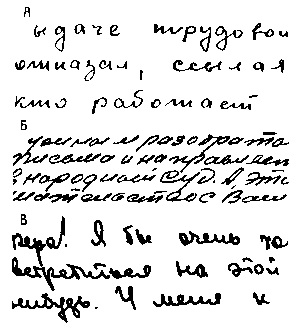 А
ыдаче трудовой
отказал, ссылая
кто работает
Б
разобрат
письма и направляет
народный суд. А, эт
Вам
В
пера! Я бы очень хо
встретиться на этой
нибудь. У меня к